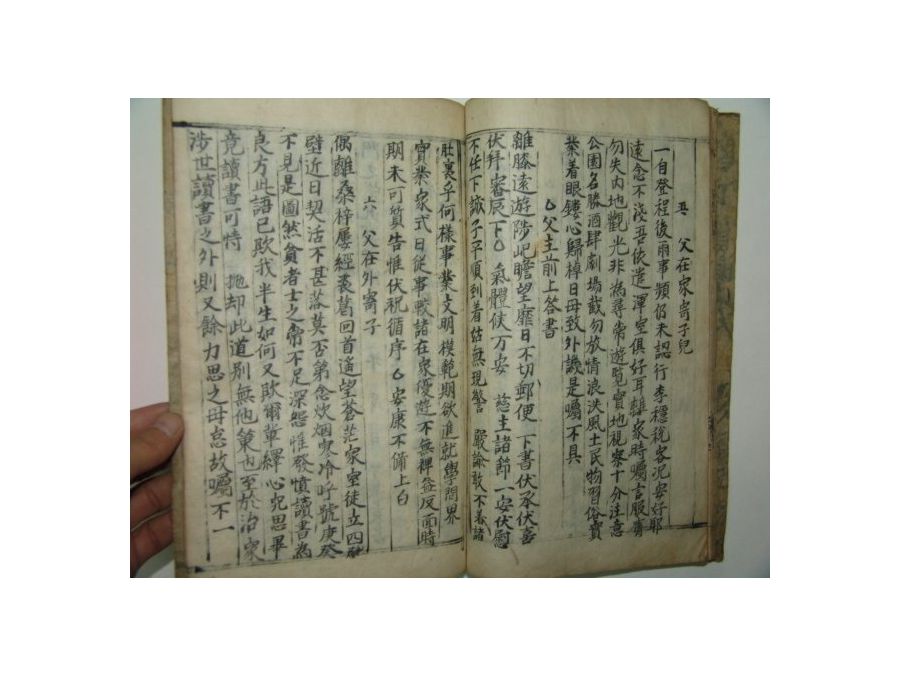 五 父在家寄子兒
一自登程後雨事頻仍未認行李穩稅客況安好耶
遠念不淺吾依遣渾室俱好耳離家時囑言服膺
勿失內地觀光非為尋常遊覽實地視察十分注意
公園名勝酒肆劇場截勿放情浪泆風土民物習俗實
業着眼鏤心歸棹日毋致外譏是囑不具
父主前上答書
離膝遠遊陟岵瞻望靡日不切郵便下書伏承伏喜
伏拜審辰下 氣體候万安 慈主諸節一安伏慰
不任下誠子平順到着姑無現警 嚴諭敢不着諸
肚裏乎何樣事業文明模範期欲進就學問界
實業家式日從事戰諸在家優遊不無裨益反面時
期未可質告惟伏祝循序 安康不備上白
六 父在外寄子
偶離桑梓屢經裘葛回首遙望蒼茫家室徒立四
壁近日契活不甚落莫否第念炊烟寒冷呼號庚癸
不見是圖然貧者士之常不足深怨惟發憤讀書為
良方此語已欺我半生如何又欺爾輩繹心究思畢
竟讀書可恃 拋却此道別無他策也至於治家
涉世讀書之外則又餘力思之毋怠故囑不一